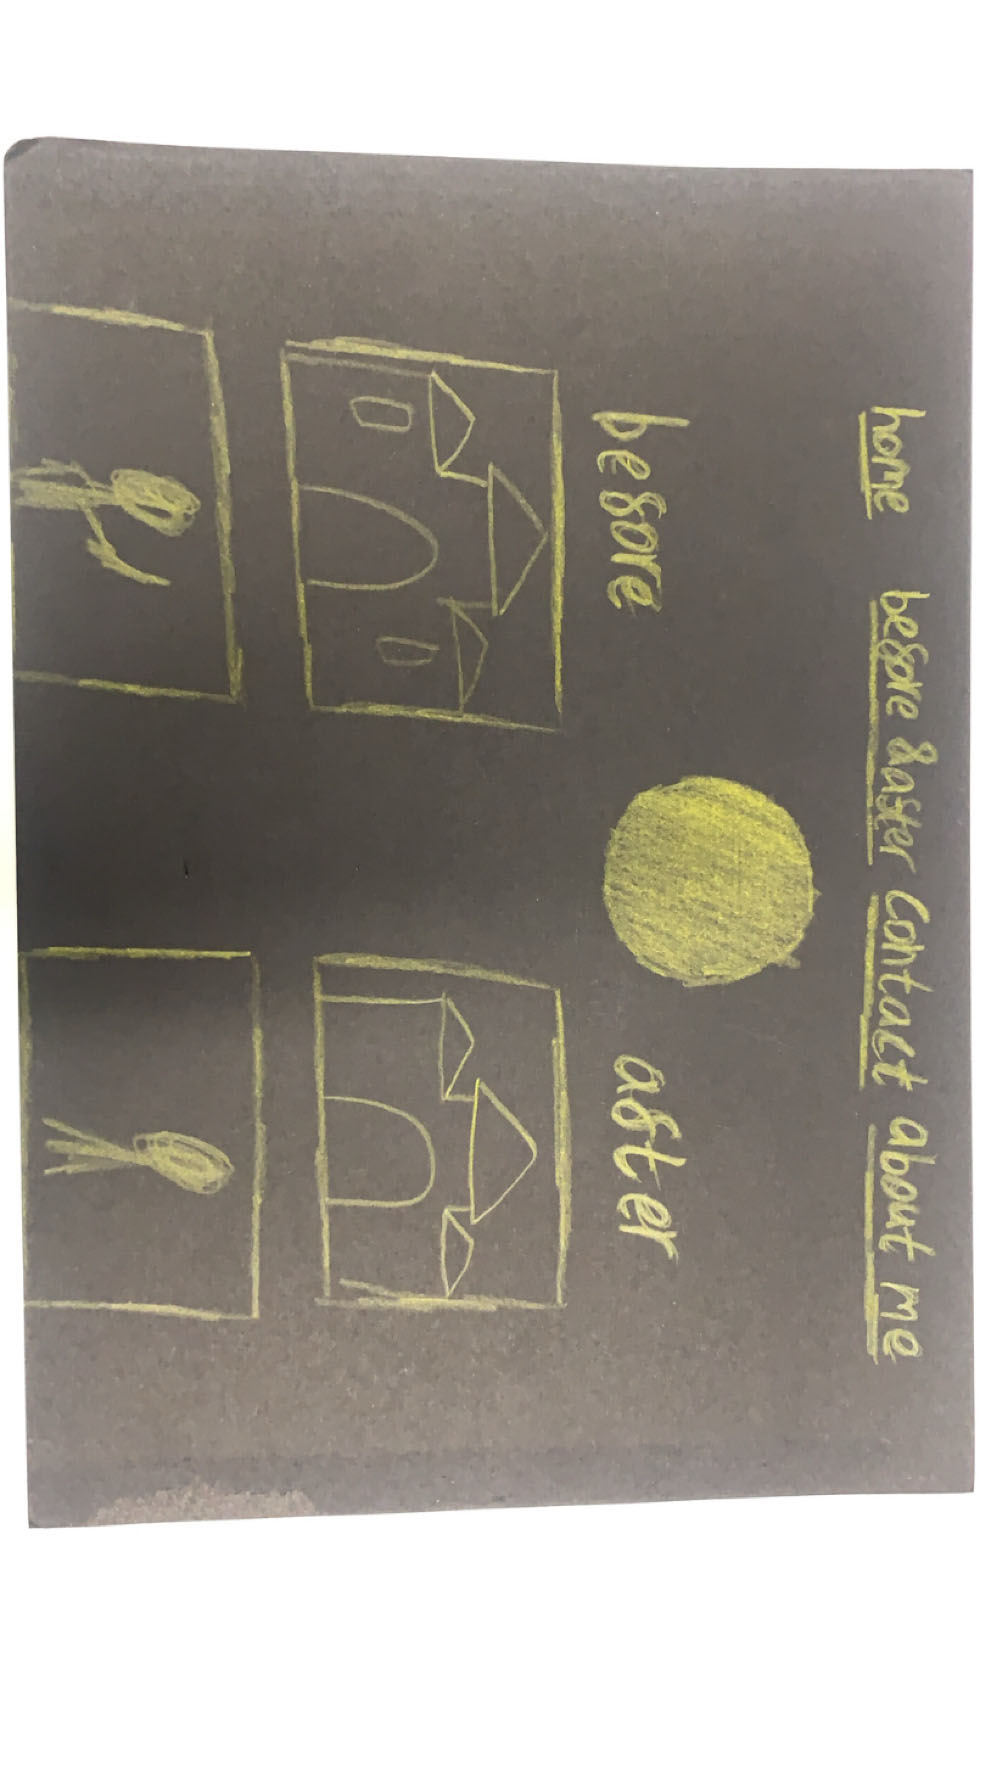 home before & after Contact about me
before after